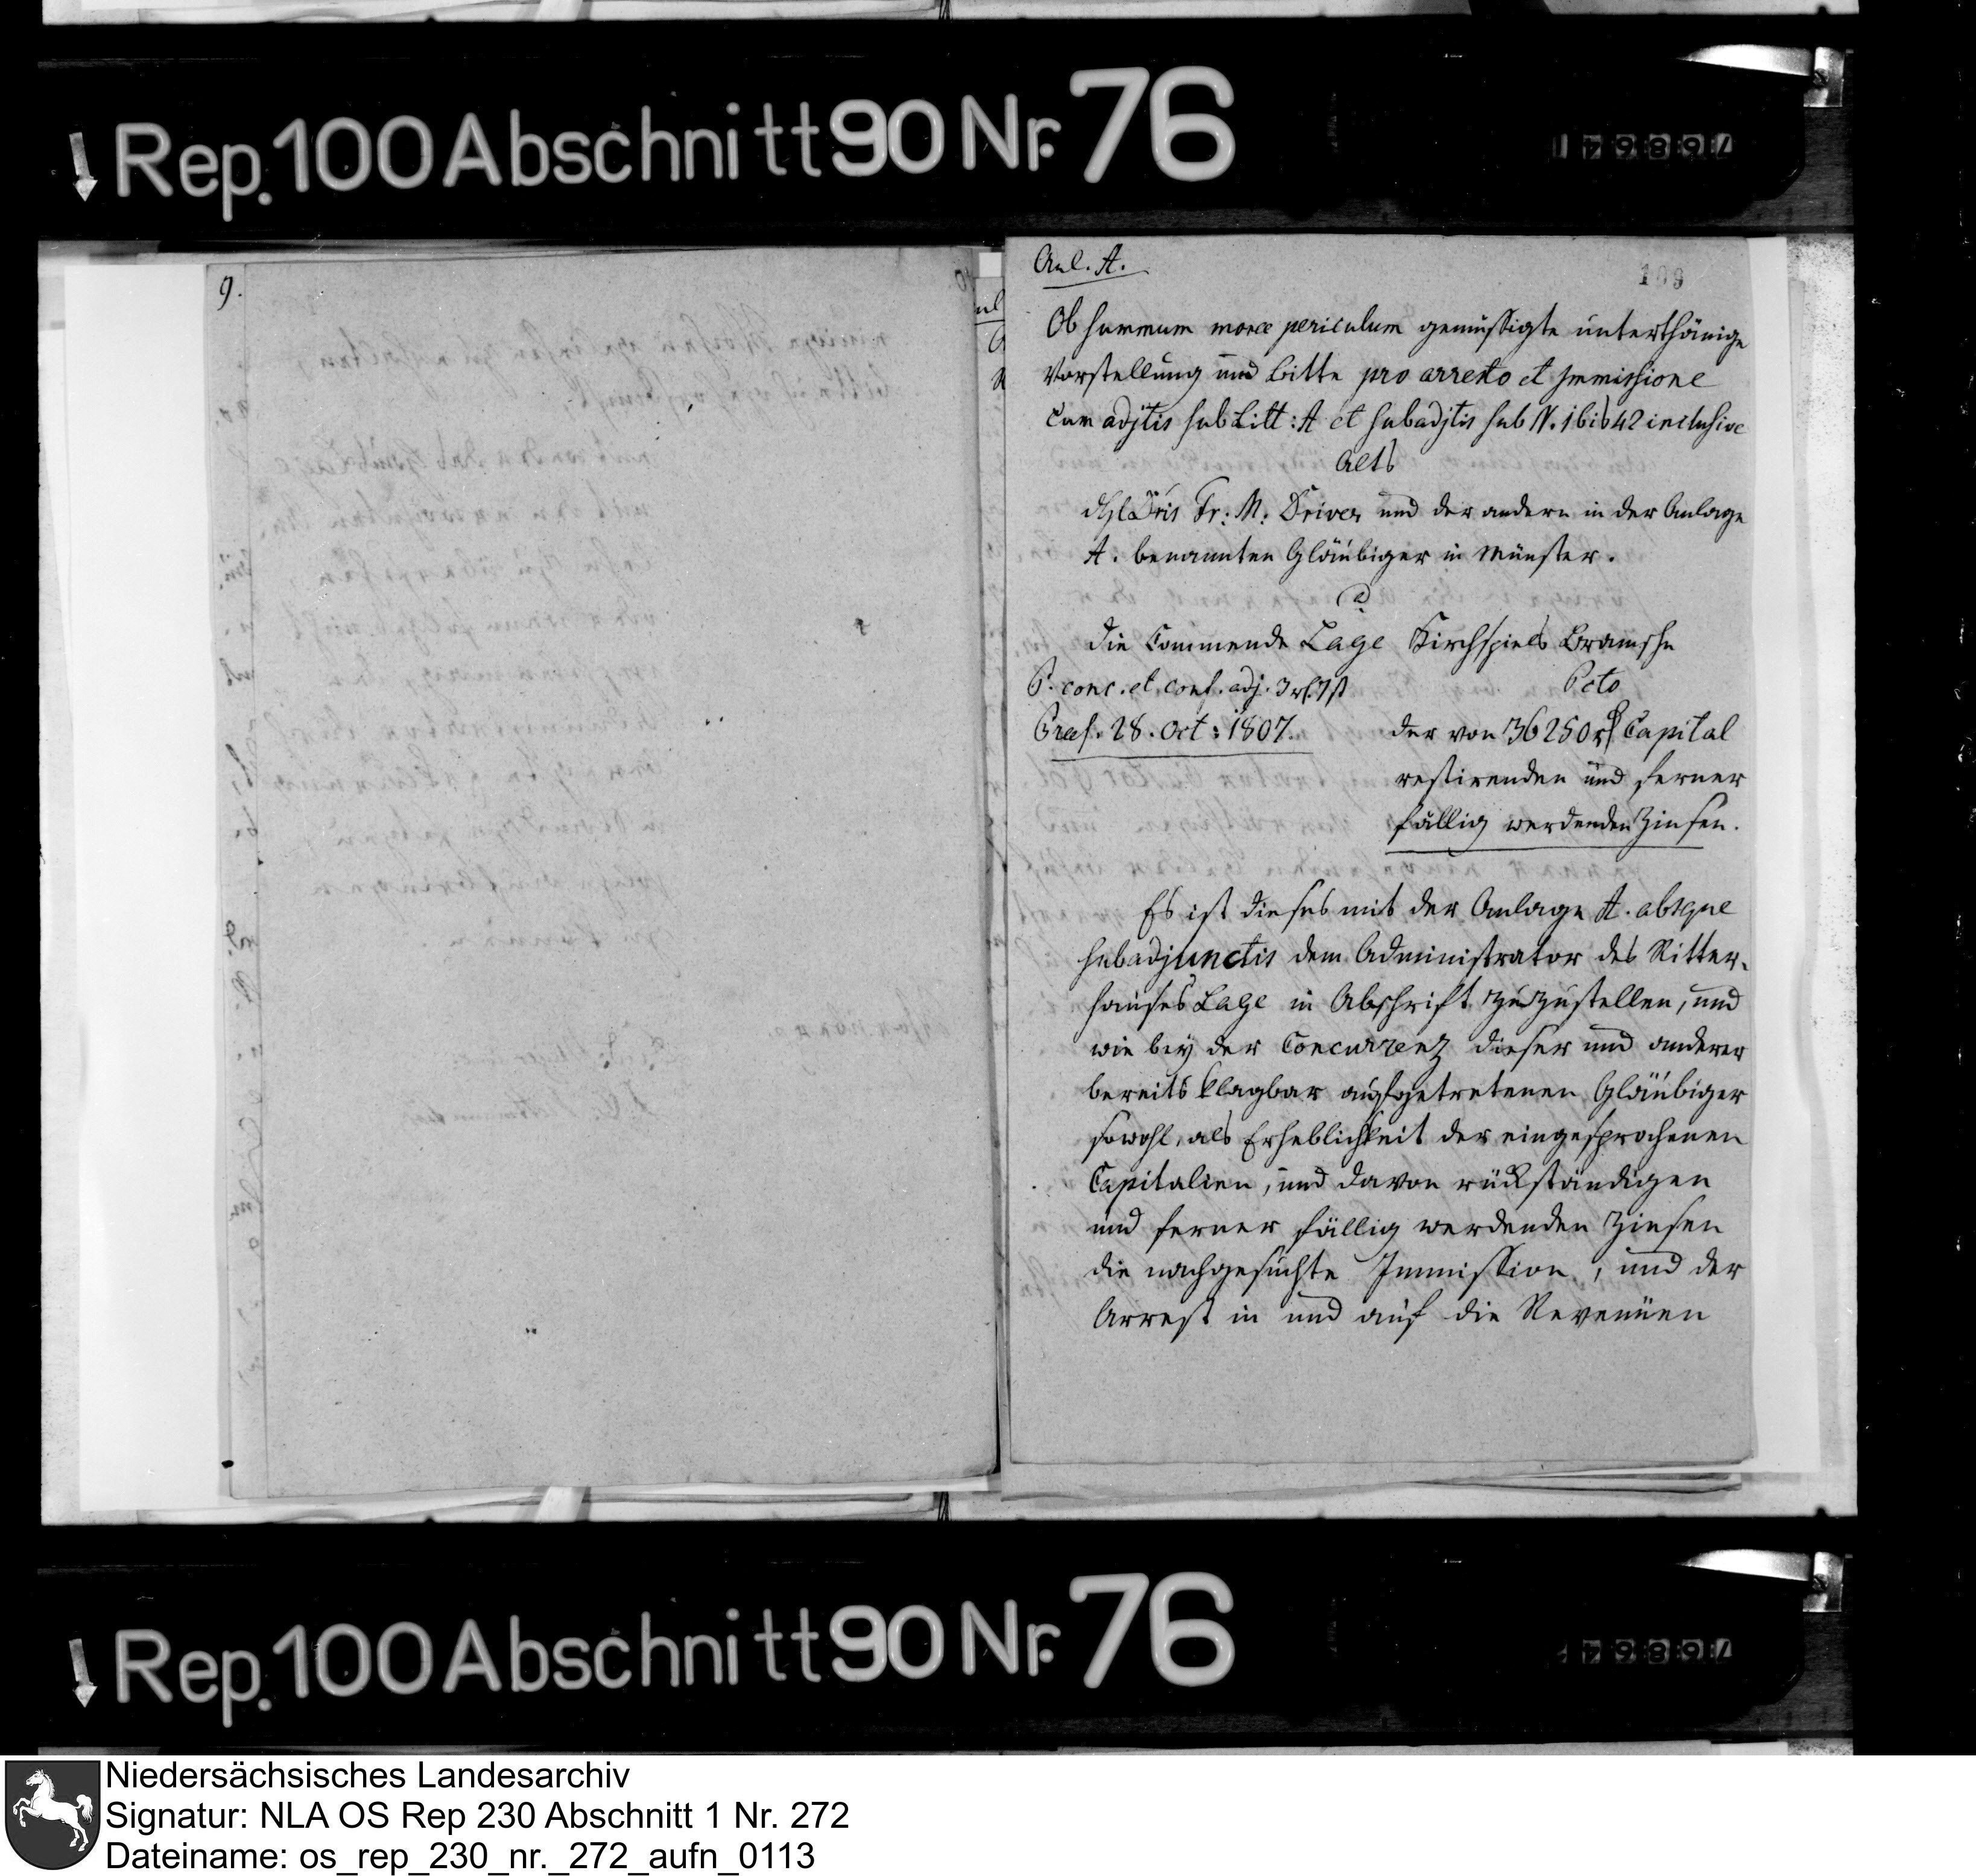 Rep. 100 Abschnitt 90 Nr. 76
76864
9.
Anl. A.
109
Ob summum moræ periculum gemüssigte unterthänige
Vorstellung und Bitte pro arresto et Immissione
Cum adjtis sub Litt: A et subadjtis sub N. 1 bis 42 inclusive
Abts
Dris Fr: M: Driver und der andern in der Anlage
A. benannten Gläubiger in Münster.
die Commende Lage Kirchspiels Bramsche
Pcto
P. conc. et conf. adj.
Præs. 28. Oct: 1807.
der von 36250 rt Capital
restirenden und ferner
fällig werdenden Zinsen.
Es ist dieses mit der Anlage A. absque
subadjunctis dem Administrator des Ritter-
hauses Lage in Abschrift zuzustellen, und
wie bey der Concurrenz dieser und anderer
bereits klagbar aufgetretenen Gläubiger
sowohl, als Erheblichkeit der eingesprochenen
Capitalien, und davon rückständigen
und ferner fällig werdenden Zinsen
die nachgesuchte Immission, und der
Arrest in und auf die Revenüen
Rep. 100 Abschnitt 90 Nr. 76
76864
Niedersächsisches Landesarchiv
Signatur: NLA OS Rep 230 Abschnitt 1 Nr. 272
Dateiname: os_rep_230_nr._272_aufn_0113